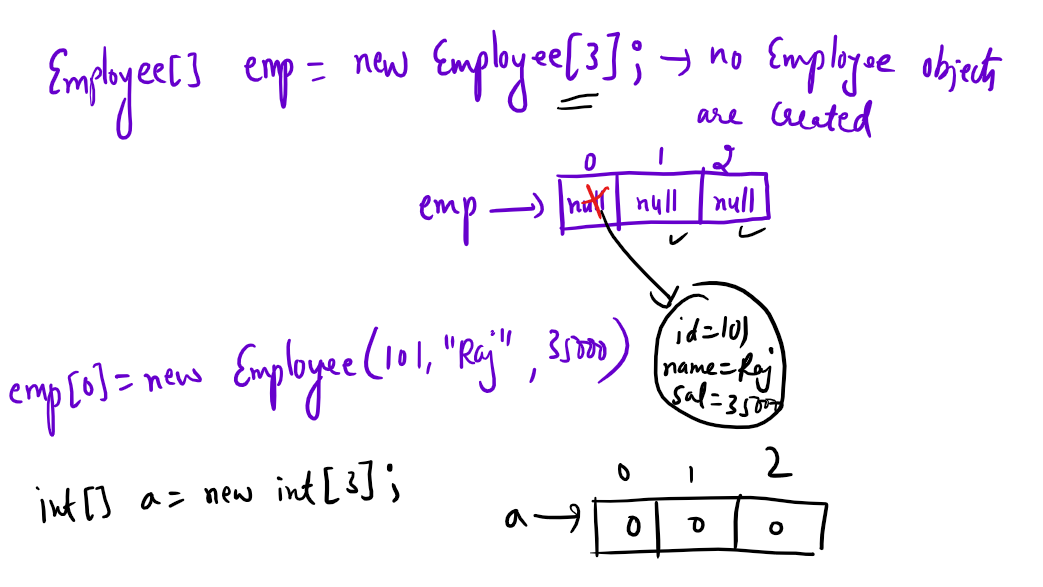 Employee[] emp = new Employee[3]; → no Employee objects
are created
0 1 2
emp → null null null
id=101
name=Raj
sal=35000
emp[0]=new Employee(101, "Raj", 35000)
int[] a= new int[3];
0 1 2
a → 0 0 0